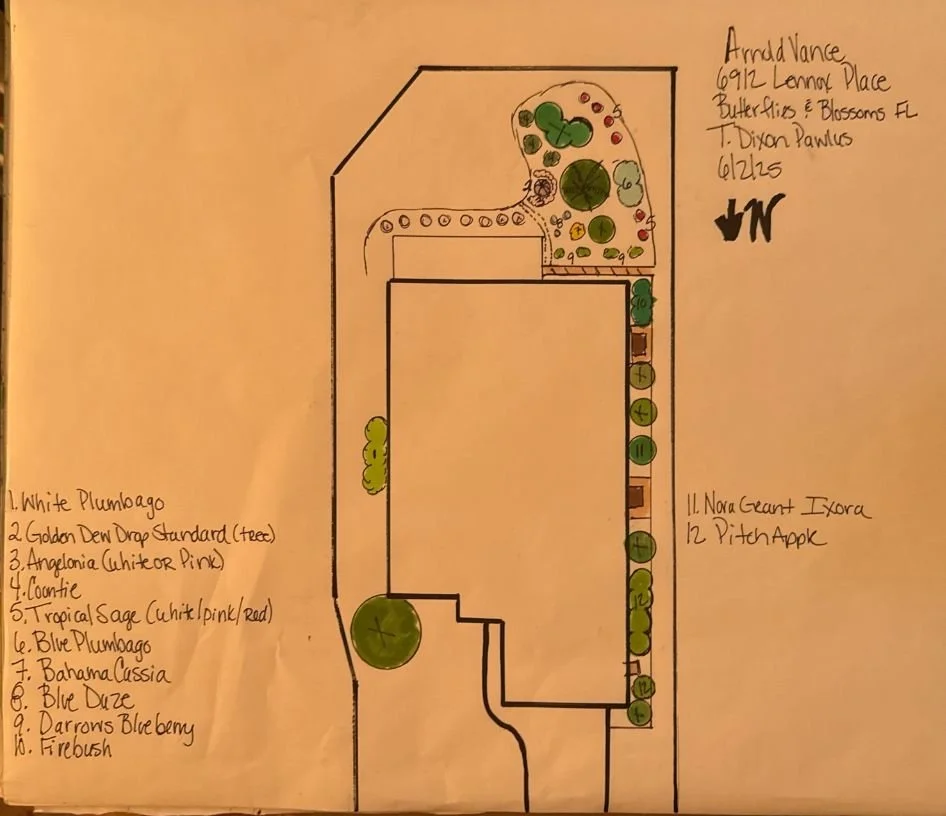 Arnold Vance
6912 Lennox Place
Butterflies & Blossoms FL
T. Dixon Pawlus
6/2/25
N
5
4
4
4
2
6
8
7
5
9
9
10
11
12
12
1. White Plumbago
2 Golden Dew Drop Standard (tree)
3. Angelonia (white or Pink)
4. Coontie
5. Tropical Sage (white/pink/red)
6. Blue Plumbago
7. Bahama Cassia
8. Blue Daze
9. Darrows Blueberry
10. Firebush
11. Nora Grant Ixora
12 Pitch Apple